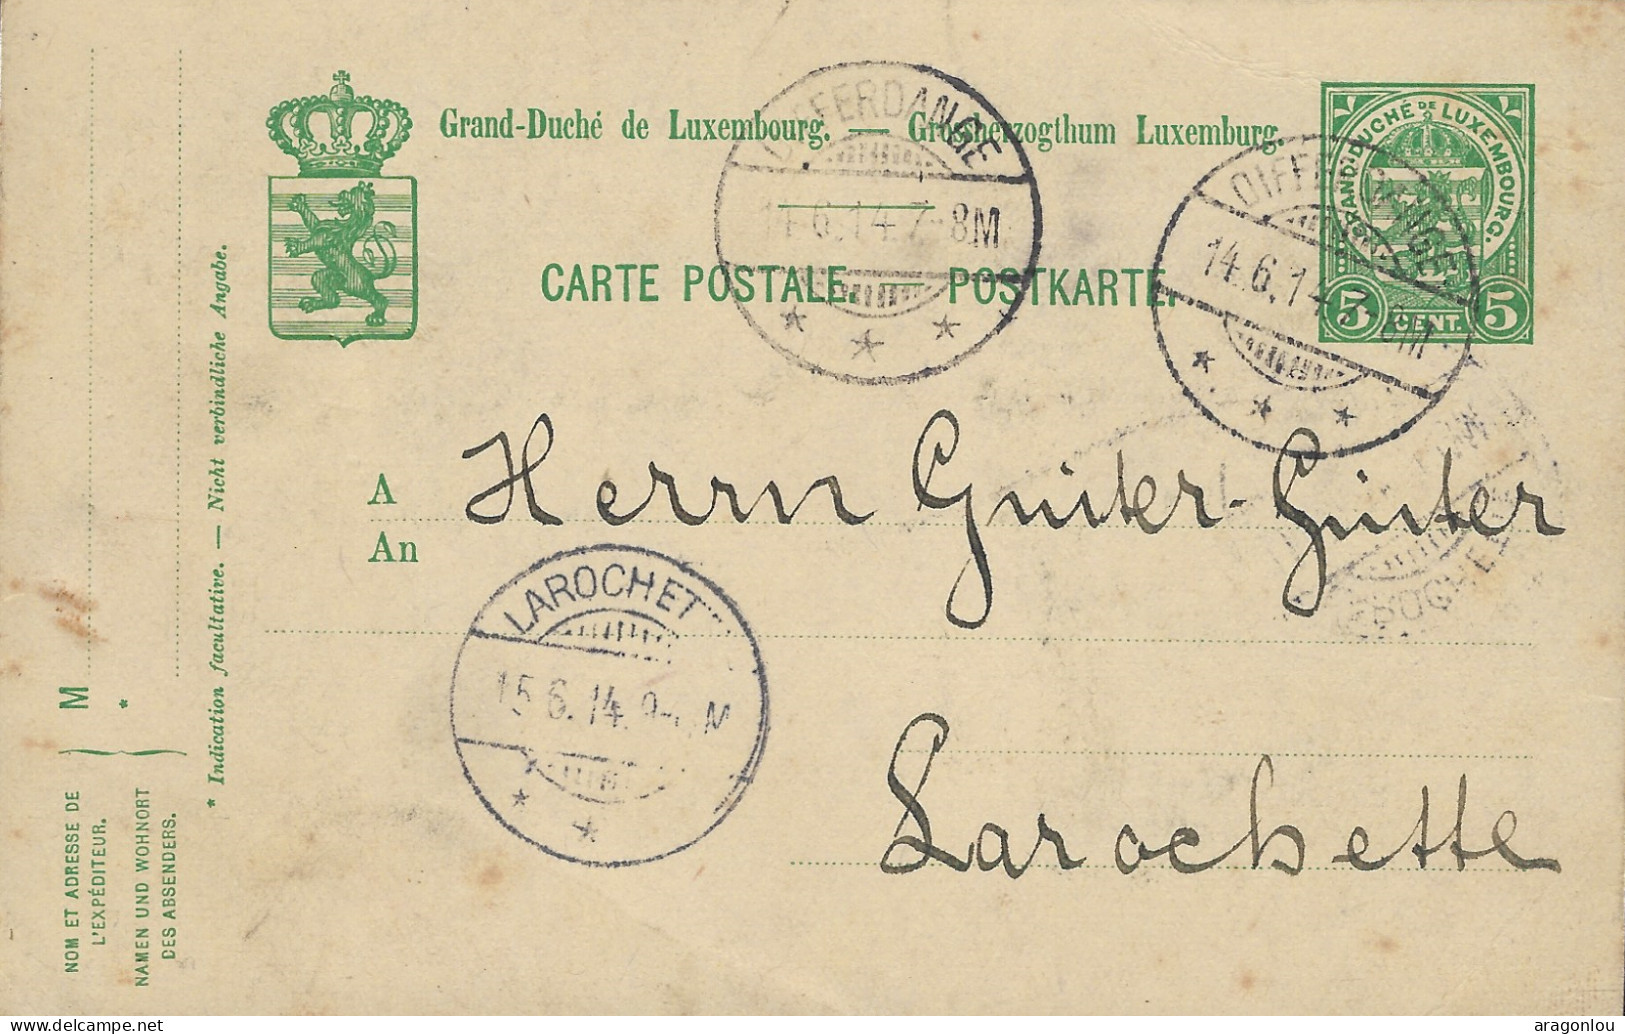 Grand-Duché de Luxembourg. — Grossherzogthum Luxemburg.
CARTE POSTALE. — POSTKARTE.
GRAND-DUCHÉ DE LUXEMBOURG.
5 CENT. 5
DIFFERDANGE
14.6.14.7-8M
DIFFERDANGE
14.6.14.7-8M
A
An
Herrn Ginter-Ginter
Larochette
LAROCHET
15.6.14.
M
* Indication facultative. — Nicht verbindliche Angabe.
M
*
NOM ET ADRESSE DE
L'EXPÉDITEUR.
NAMEN UND WOHNORT
DES ABSENDERS.
aragonlou